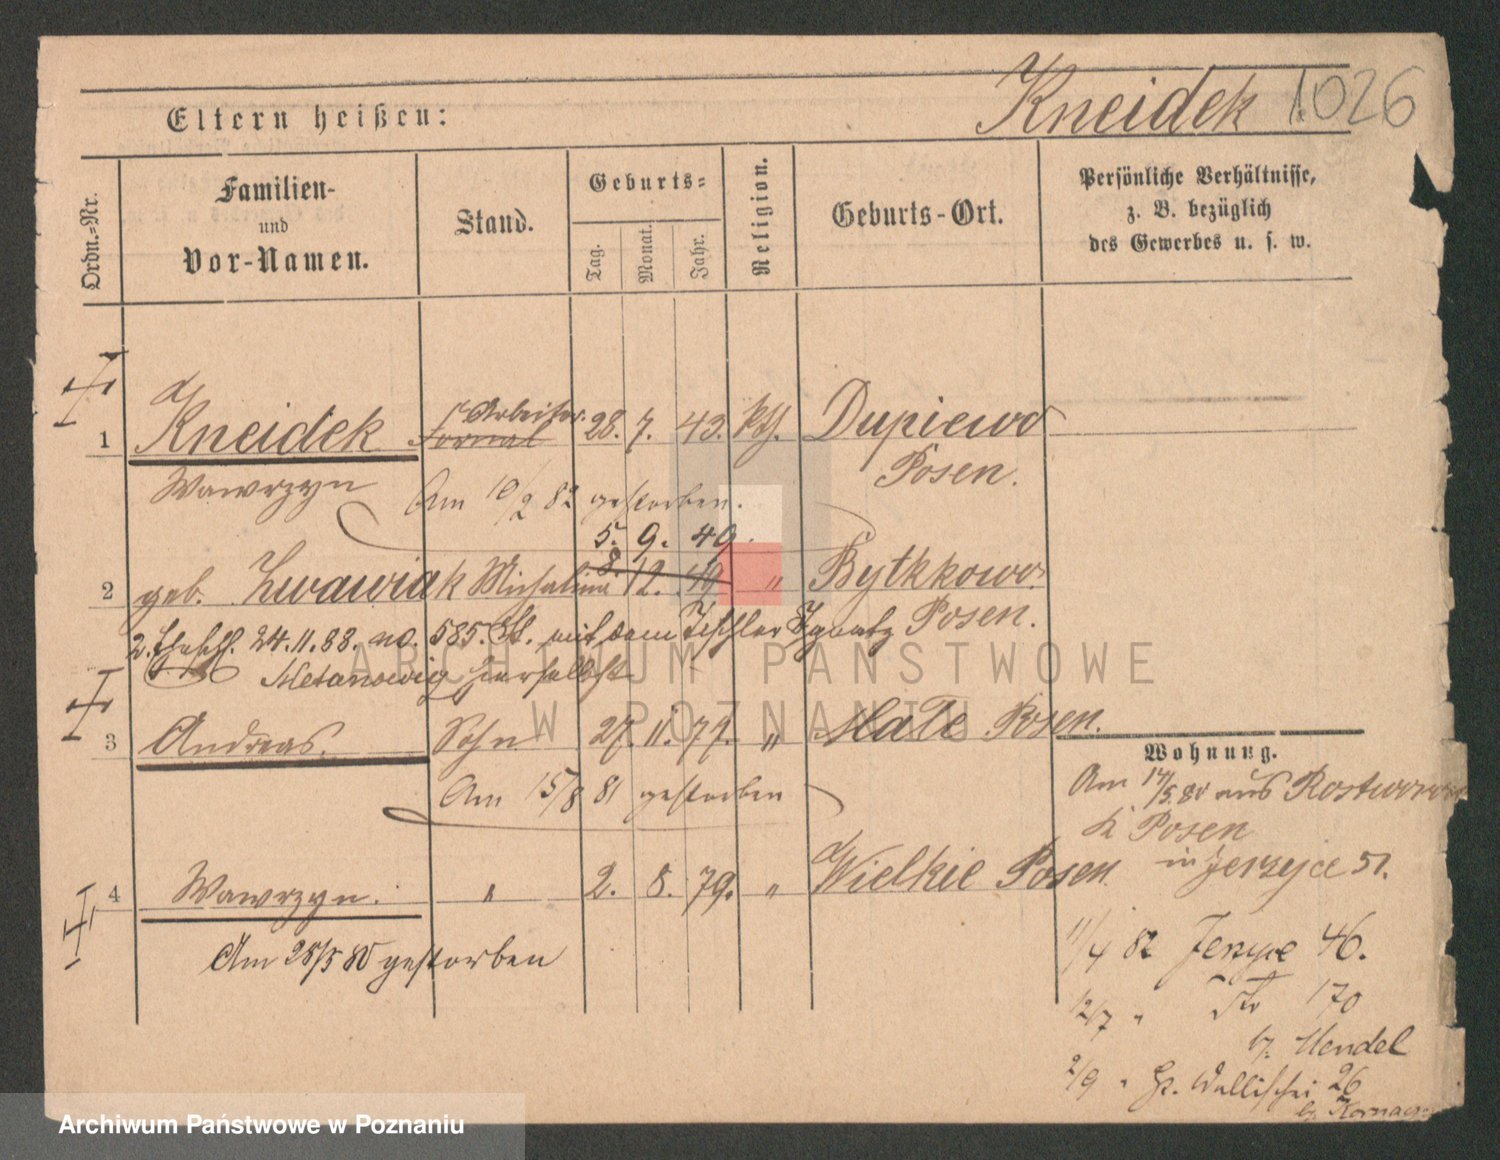 Kneidek 1026
Eltern heißen:
Ordn.-Nr.
Familien-
und
Vor-Namen.
Stand.
Geburts-
Tag.
Monat.
Jahr.
Religion.
Geburts-Ort.
Persönliche Verhältnisse,
z. B. bezüglich
des Gewerbes u. s. w.
1 Kneidek Arbeiter. Fornal 28. 7. 43. kth. Dupiewo
Wawrzyn Posen.
Am 10/2 82 gestorben.
5. 9. 49.
2 geb. Michalina 8. 12. 49. " Bytkkowo
2. 24. 11. 88. no. 585. mit dem Tischler Ignatz Posen.
hierselbst
3 Andreas. Sohn 27. 11. 77. " Posen.
Am 15/8 81 gestorben
4 Wawrzyn. " 2. 8. 79. " Wielkie Posen
Am 28/5 80 gestorben
Wohnung.
Am 14/5. 80 aus
K Posen
in Jerzyce 51.
11/4 82 Jerzyce 46.
12/7 " 170
b. Mendel
2/9 " Gr. Wallischei 26
ARCHIWUM PAŃSTWOWE
W POZNANIU
Archiwum Państwowe w Poznaniu